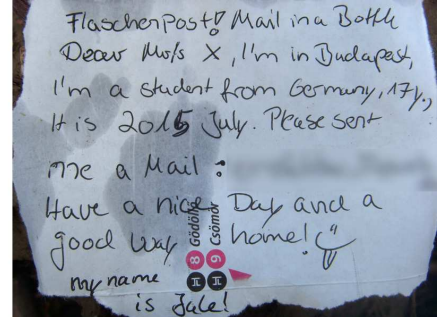 Flaschenpost! Mail in a Bottle
Dear Mr/s X, I'm in Budapest,
I'm a student from Germany, 17y.,
It is 2015 July. Please sent
me a Mail :
Have a nice Day and a
good way home!
my name
is Jule!
H 8 Gödöllő
H 9 Csömör